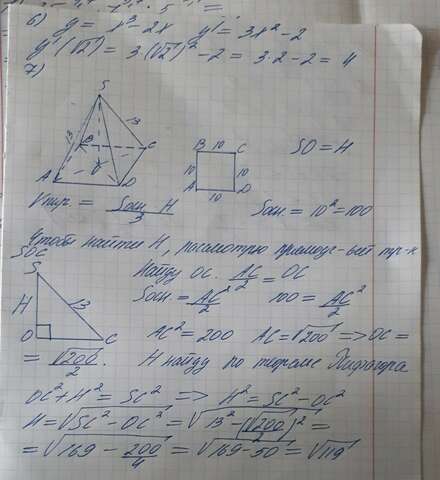 6) y = x³ - 2x   y' = 3x² - 2
y'(√2) = 3(√2)² - 2 = 3·2 - 2 = 4
7)
S
13 13
B C
A O D
B 10 C
10 10
A 10 D
SO = H
Vпир. = Sосн H / 3
Sосн = 10² = 100
Чтобы найти H, рассмотрю прямоуг-ый тр-к
SOC
S
H 13
O C
Найду OC. AC/2 = OC
Sосн. = AC²/2   100 = AC²/2
AC² = 200   AC = √200 => OC =
= √200/2.   H найду по теореме Пифагора
OC² + H² = SC² => H² = SC² - OC²
H = √SC² - OC² = √13² - (√200/2)² =
= √169 - 200/4 = √169-50 = √119